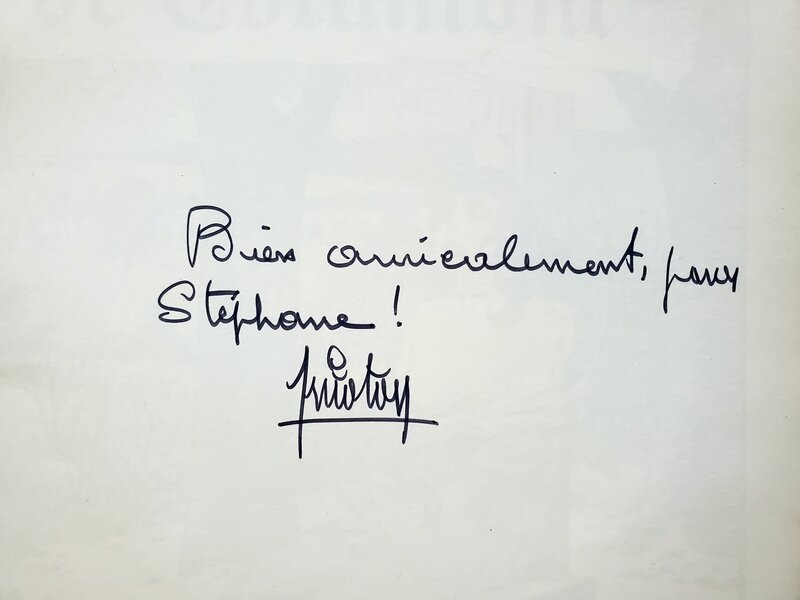 Bien amicalement, pour
Stéphane !